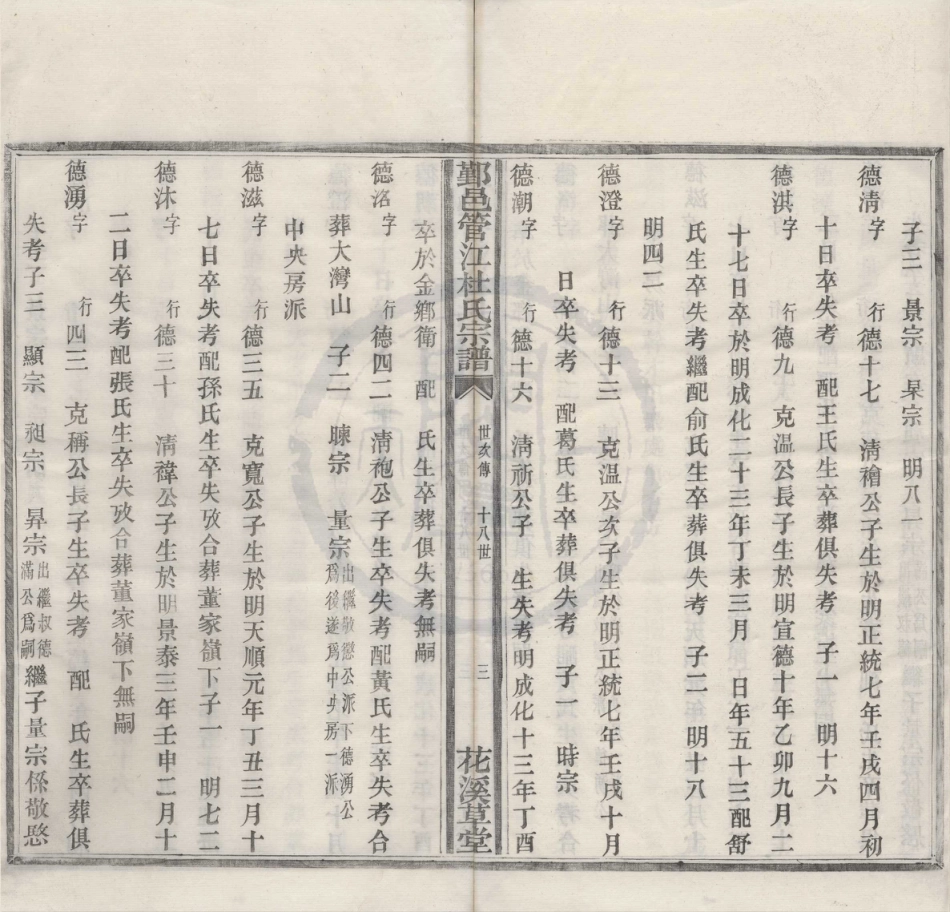 子三　景宗　杲宗　明八一
德清　字　行德十七　清禬公子生於明正統七年壬戌四月初
十日卒失考　配王氏生卒葬俱失考　子一　明十六
德淇　字　行德九　克温公長子生於明宣德十年乙卯九月二
十七日卒於明成化二十三年丁未三月　日年五十三配舒
氏生卒失考繼配俞氏生卒葬俱失考　子二　明十八
明四二
德澄　字　行德十三　克温公次子生於明正統七年壬戌十月
日卒失考　配葛氏生卒葬俱失考　子一　時宗
德潮　字　行德十六　清祈公子　生失考明成化十三年丁酉
鄞邑管江杜氏宗譜　世次傳　十八世　三　花溪草堂
卒於金鄉衛　配　氏生卒葬俱失考無嗣
德洛　字　行德四二　清袍公子生卒失考配黃氏生卒失考合
葬大灣山　子二　暕宗　量宗　出繼敬愍公派下德湧公
爲後遂爲中央房一派
中央房派
德滋　字　行德三五　克寬公子生於明天順元年丁丑三月十
七日卒失考配孫氏生卒失攷合葬董家嶺下子一　明七二
德沐　字　行德三十　清禕公子生於明景泰三年壬申二月十
二日卒失考配張氏生卒失攷合葬董家嶺下無嗣
德湧　字　行四三　克稱公長子生卒失考　配　氏生卒葬俱
失考子三　顯宗　昶宗　昇宗　出繼叔德
滿公爲嗣　繼子量宗係敬愍